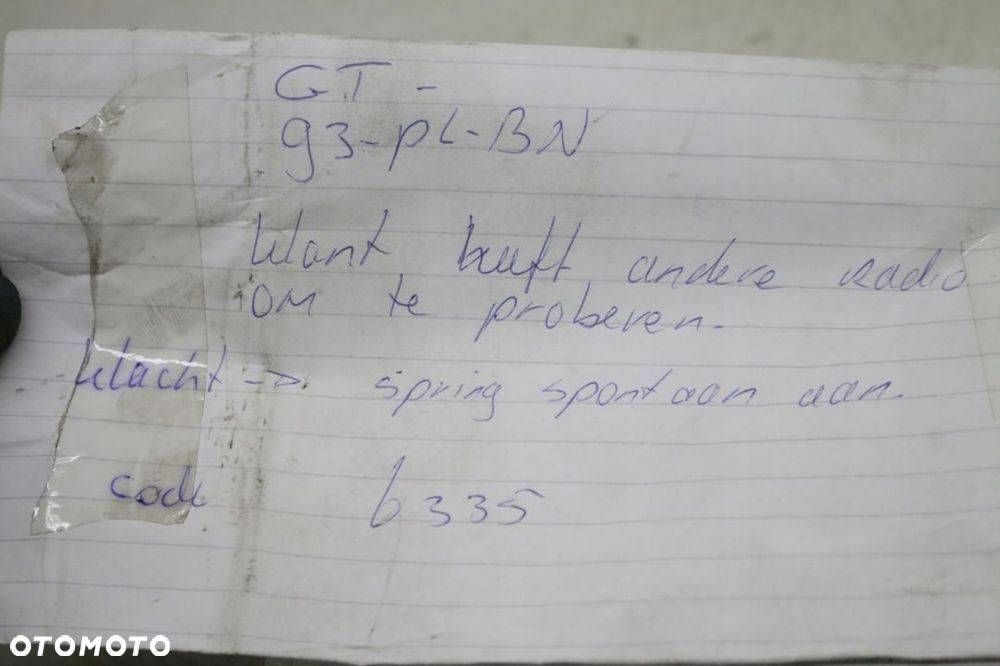 GT -
93-PL-BN
Klant heeft andere radio
om te proberen.
Klacht -> spring spontaan aan.
code 6335
OTOMOTO